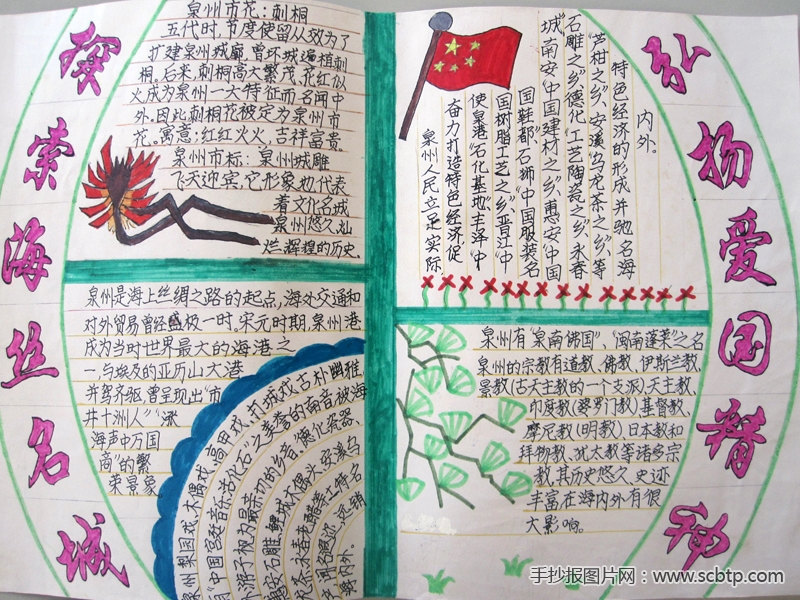 探索海丝名城
泉州市花：刺桐
五代时，节度使留从效为了
扩建泉州城廓，曾环城遍植刺
桐。后来，刺桐高大繁茂、花红似
火成为泉州一大特征而名闻中
外。因此刺桐花被定为泉州市
花。寓意：红红火火，吉祥富贵.
泉州市标：泉州城雕
飞天迎宾，它形象地代表
着文化名城
泉州悠久灿
烂辉煌的历史.
泉州是海上丝绸之路的起点，海外交通和
对外贸易曾经盛极一时。宋元时期，泉州港
成为当时世界最大的海港之
一与埃及的亚历山大港
并驾齐驱，曾呈现出"市
井十洲人""涨
海声中万国
商"的繁
荣景象
泉州梨园戏、木偶戏、高甲戏、打城戏、古朴幽雅
"中国宫廷音乐活化石"之美誉的南音被海
外游子视为最亲切的乡音。德化瓷器、
惠安石雕、鲤城木偶头、安溪乌
龙茶、永春老醋
闻名遐迩、远销
海内外。
泉州人民立足实际
奋力打造特色经济促
使泉港"石化基地"丰泽"中
国树脂工艺之乡"晋江"中
国鞋都"石狮"中国服装名
城"南安"中国建材之乡"、惠安"中国
石雕之乡"德化"工艺陶瓷之乡"永春
"芦柑之乡"、安溪"乌龙茶之乡"、等
特色经济的形成并驰名海
内外。
泉州有"泉南佛国"、"闽南蓬莱"之名
泉州的宗教有道教、佛教、伊斯兰教、
景教(古天主教的一个支派)天主教、
印度教(婆罗门教)基督教、
摩尼教(明教)日本教和
拜物教、犹太教等诸多宗
教，其历史悠久、史迹
丰富在海内外有很
大影响。
弘扬爱国精神
手抄报图片网：www.scbtp.com